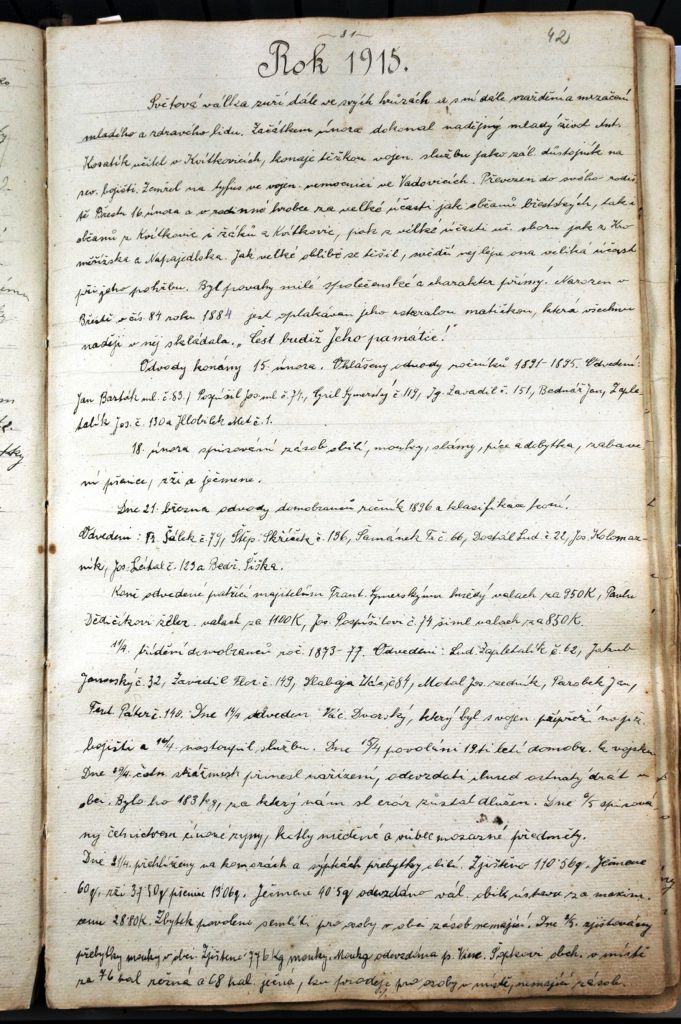 81
42
Rok 1915.
Světová válka zuří dále ve svých hrůzách a s ní dále vraždění a mrzačení
mladého a zdravého lidu. Začátkem února dokonal nadějný mladý život Ant.
Kosatík učitel v Kvítkovicích, konaje těžkou vojen. službu jako zál. důstojník na
sev. bojišti. Zemřel na tyfus ve vojen. nemocnici ve Vadovicích. Převezen do svého rodiš
tě Břestu 16. února a v rodinné hrobce za velké účasti jak občanů břestských, tak i
občanů z Kvítkovic i žáků z Kvítkovic, pak z velké účasti uč. sboru jak z Kro
měřížska a Napajedlska. Jak velké oblibě se těšil, svědčí nejlépe ona veliká účast
při jeho pohřbu. Byl povahy milé společenské a charakter přímý. Narozen v
Břestě v čís. 84 roku 1884 jest oplakáván jeho ustaralou matičkou, která všechnu
naději v něj skládala. „Čest budiž Jeho památce!"
Odvody konány 15. února. Ohlášeny odvody ročníků 1891-1895. Odvedeni:
Jan Barták ml. č. 83, Pospíšil Jos. ml. č. 74, Cyril Symerský č. 119, Ig. Zavadil č. 151, Bednář Jan, Zaple
talík Jos. č. 130 a Hlobílek Met. č. 1.
18. února spisování zásob obilí, mouky, slámy, píce a dobytka, zabave
ní pšenice, rži a ječmene.
Dne 21. března odvody domobranců ročník 1896 a klasifikace koní.
Odvedeni: Fr. Šálek č. 79, Štěp. Skříček č. 136, Šamánek Fr. č. 66, Dostál Lud. č. 22, Jos. Kolomaz
ník, Jos. Zbítal č. 123 a Bedř. Šiška.
Koní odvedené patřící majitelům Frant. Symerskýmu hnědý valach za 950 K, Pavlu
Dědičíkovi žéler. valach za 1100 K, Jos. Pospíšilovi č. 74 siml valach za 850 K.
11/4. třídění domobranců roč. 1873-77. Odvedeni: Lud. Zapletalík č. 62, Jakub
Janovský č. 32, Zavadil Flor. č. 149, Hlabaja Vác. č. 84, Motal Jos. zedník, Parobek Jan,
Ferd. Páter č. 140. Dne odveden Vác. Dvorský, který byl s vojen. přípřeží na již.
bojišti a nastoupil službu. Dne 15/4 povoláni 19ti letí domobr. k vojsku.
Dne četn. strážmistr přinesl nařízení, odevzdati ihned ostnatý drát v
obci. Bylo ho 183 kg, za který nám sl. erár zůstal dlužen. Dne spisová
ny četnictvem zvony, kotly měděné a vůbec mosazné předměty.
Dne 21/4. přehlíženy na komorách a sýpkách přebytky obilí. Zjištěno 110·56 q. Ječmene
60 q, rži 37·50 q pšenice 13·06 q. Ječmene 40·5 q odevzdáno vál. obil. ústavu za maxim.
cenu 28·80 K. Zbytek povoleno semlíti pro osoby v obci zásob nemající. Dne zjišťovány
přebytky mouky v obci. Zjištěno 776 Kg mouky. Mouka odevzdána p. Vinc. Šopkovi obch. v místě
za 76 hal. režná a 68 hal. ječná, ku prodeji pro osoby v místě, nemající zásob.